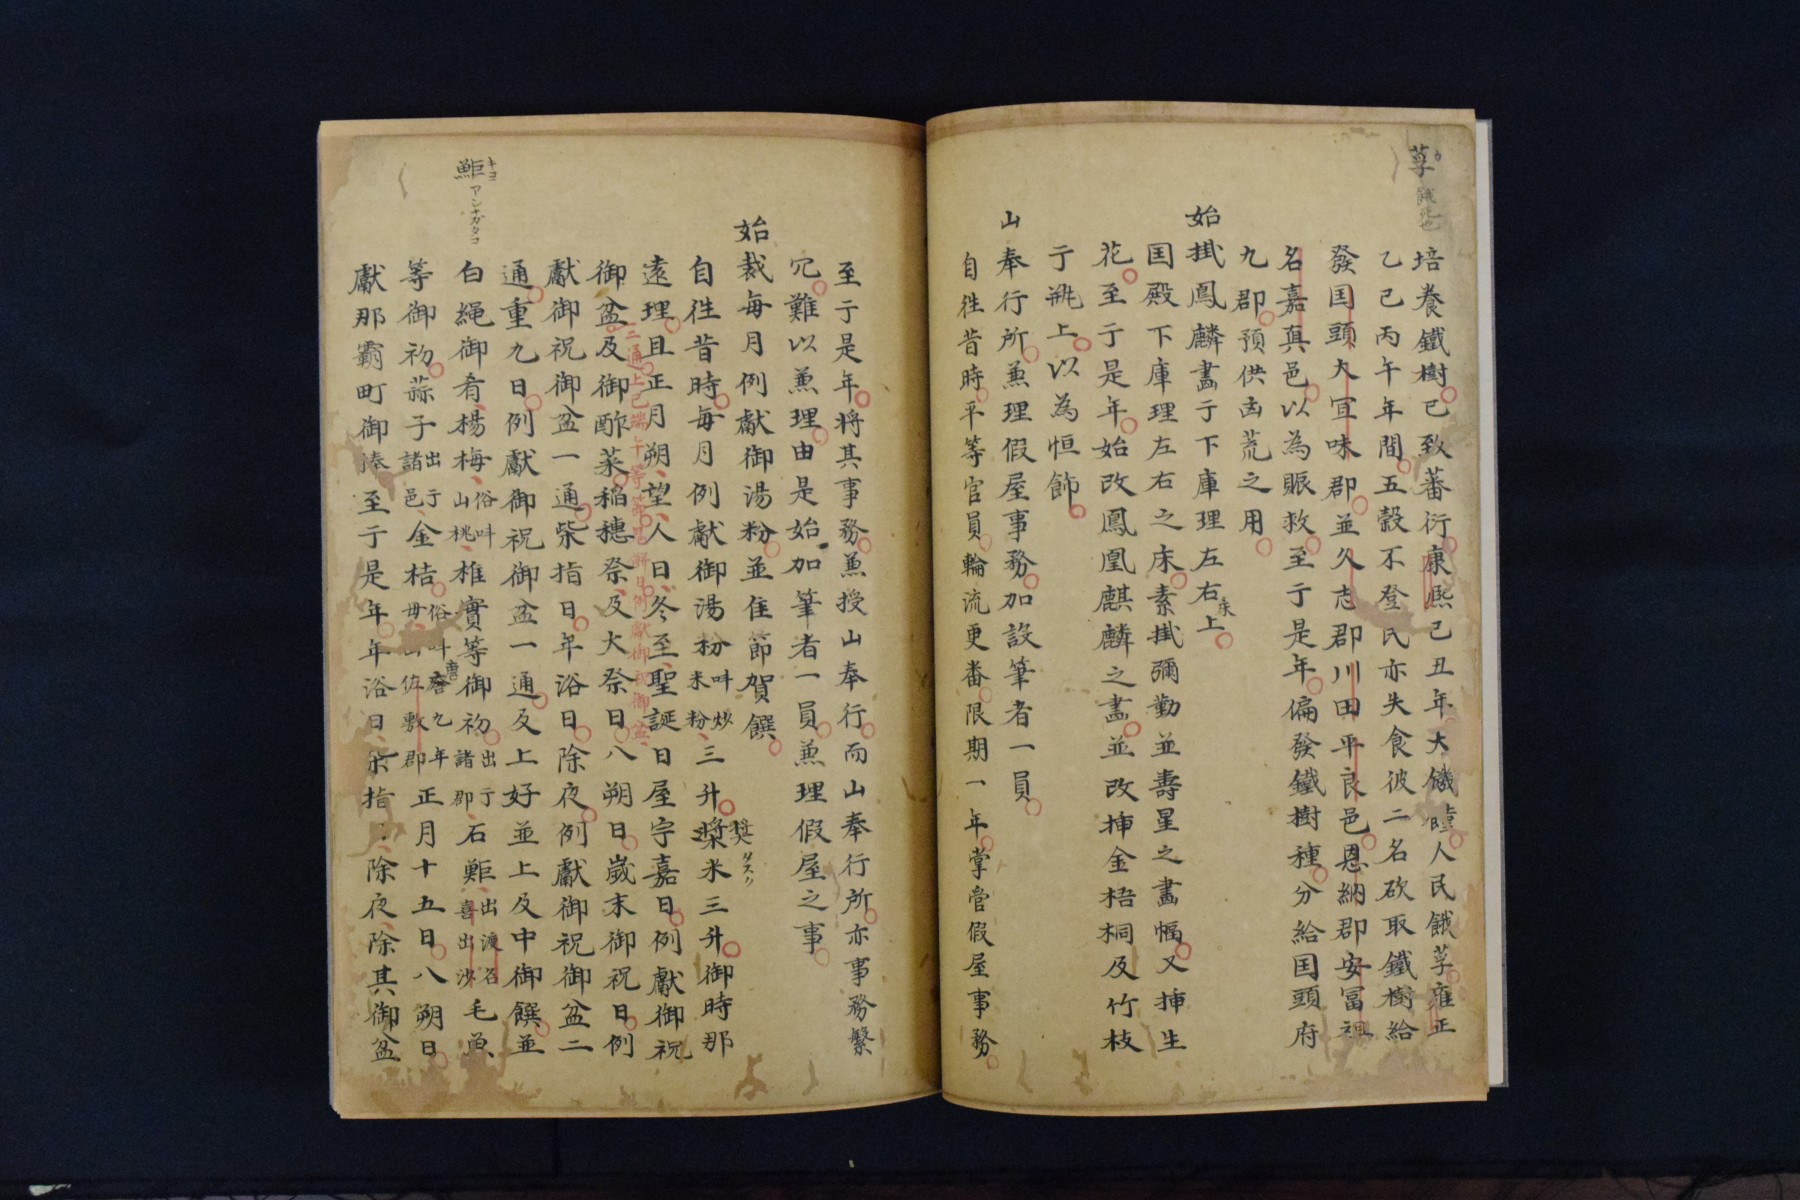 莩
培養鐵樹已致蕃衍康熙己丑年大饑人民餓莩雍正
乙巳丙午年間五穀不登民亦失食彼二名砍取鐵樹給
發国頭大冝味郡並久志郡川田平良邑恩納郡安冨祖
名嘉真邑以為賑救至于是年偏發鐵樹種分給国頭府
九郡預供凶荒之用
始掛鳳麟畵于下庫理左右床上
国殿下庫理左右之床素掛彌勤並壽星之畵幅又揷生
花至于是年始改鳳凰麒麟之畵並改揷金梧桐及竹枝
于甁上以為恒飾
山奉行所兼理假屋事務加設筆者一員
自徃昔時平等官員輪流更番限期一年掌管假屋事務
至于是年將其事務兼授山奉行而山奉行所亦事務繁
冗難以兼理由是始加筆者一員兼理假屋之事
始裁每月例獻御湯粉並佳節賀饌
自徃昔時每月例獻御湯粉叫炒米粉三升槳米三升御時那
獎タスリ
遠理且正月朔望人日冬至聖誕日屋宇嘉日例獻御祝
三通上巳端午等節
御盆及御酢菜稲穗祭及大祭日八朔日歲末御祝日例
獻御祝御盆一通柴指日年浴日除夜例獻御祝御盆二
通重九日例獻御祝御盆一通及上好並上及中御饌並
鮔キヨ
アシナガタコ
白縄御肴楊梅俗叫山桃椎實等御初出于諸郡石鮔出渡名喜出沙毛魚
等御初蒜子出于諸邑金桔俗叫唐九年母出佐敷郡正月十五日八朔日
獻那霸町御俸至于是年年浴日柴指除夜除其御盆